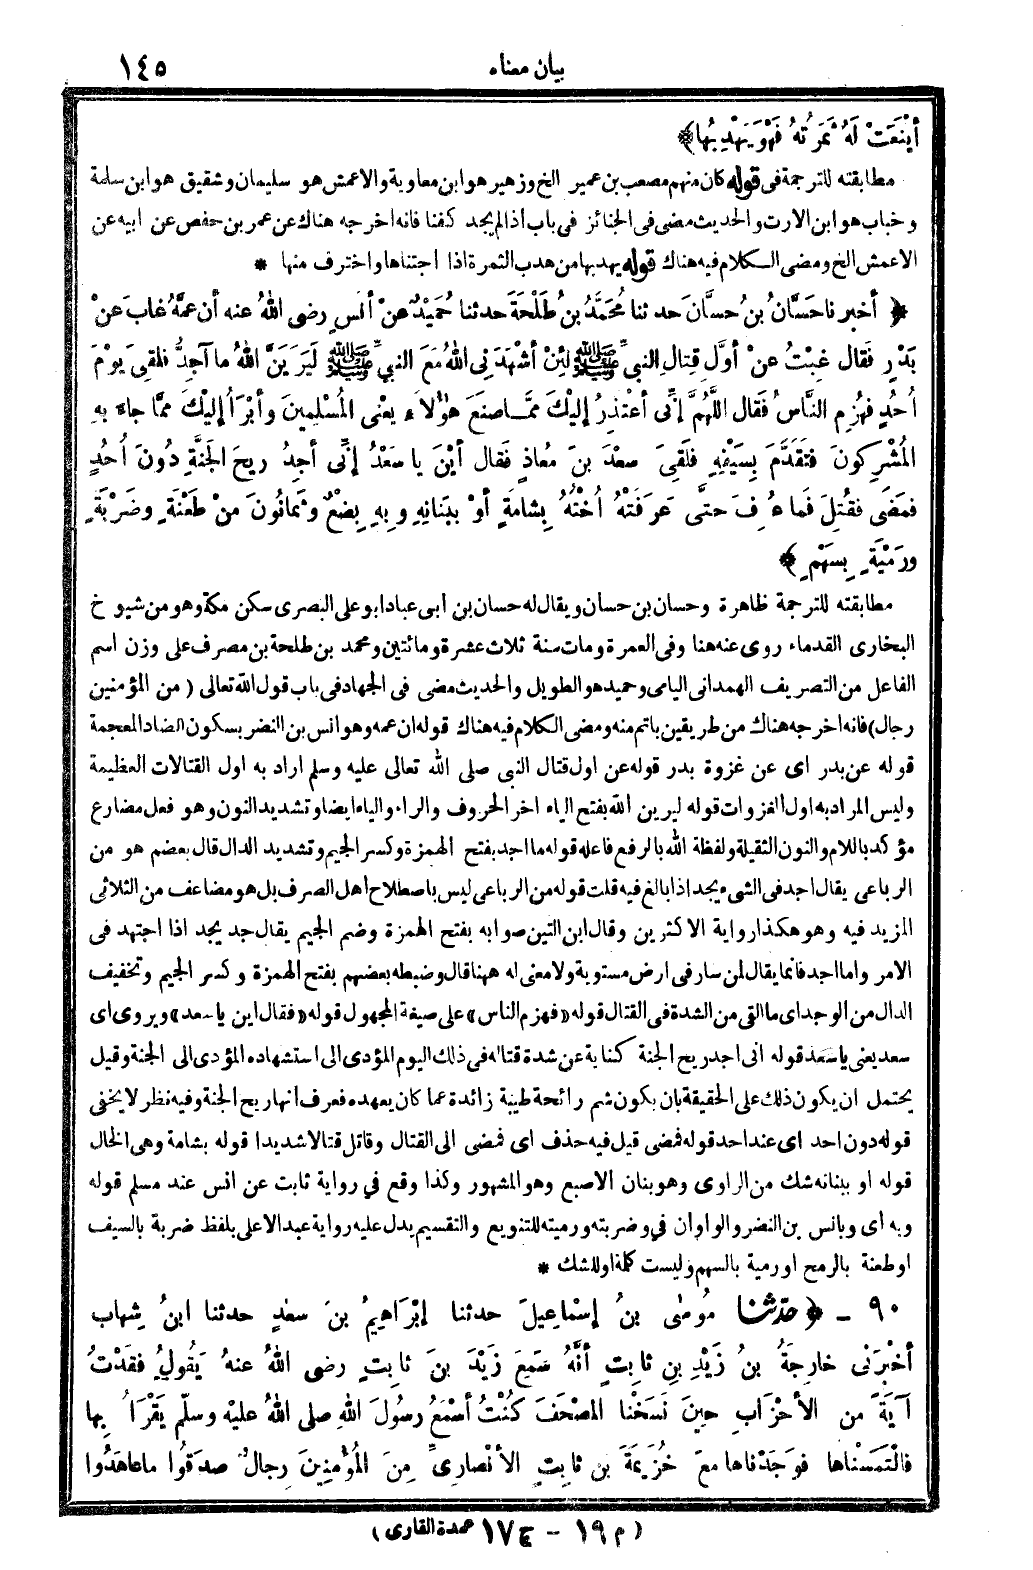 بيان معناه ١٤٥
أيْنَعَتْ لَهُ ثَمَرَتُهُ فَهْوَ يَهْدِبُهَا﴾
مطابقته للترجمة فى قوله كان منهم مصعب بن عمير الخ وزهير هو ابن معاوية والاعمش هو سليمان وشقيق هو ابن سلمة
وخباب هو ابن الارت والحديث مضى فى الجنائز فى باب اذا لم يجد كفنا فانه اخرجه هناك عن عمر بن حفص عن ابيه عن
الاعمش الخ ومضى الكلام فيه هناك قوله يهدبها من هدب الثمرة اذا اجتناها واخترف منها *
﴿ أخبرنا حَسَّانُ بنُ حسَّانَ حدثنا مُحَمَّدُ بنُ طَلْحَةَ حدثنا حُمَيْدٌ عنْ أنَسٍ رضى اللهُ عنه أن عمَّهُ غابَ عنْ
بَدْرٍ فَقال غِبْتُ عنْ أوَّلِ قِتالِ النبيِّ ﷺ لَئِنْ أشْهَدَنِى اللهُ مَعَ النبيِّ ﷺ لَيَرَيَنَّ اللهُ ما أجِدُّ فلَقِىَ يَوْمَ
أُحُدٍ فهُزِمَ النَّاسُ فَقال اللَّهُمَّ إنِّى أعْتَذِرُ إليْكَ مِمَّا صنَعَ هؤُلاءِ يعْنِى المُسْلِمينَ وأبْرَأُ إليْكَ ممَّا جاءَ بهِ
المُشْرِكُونَ فَتَقَدَّمَ بِسَيْفِهِ فلَقِىَ سعْدَ بنَ مُعاذٍ فَقال أيْنَ يا سَعْدُ إنِّى أجِدُ ريحَ الجَنَّةِ دُونَ أُحُدٍ
فمَضَى فقُتِلَ فَما عُرِفَ حتَّى عَرَفَتْهُ أُخْتُهُ بِشامَةٍ أوْ بِبَنانِهِ وبِهِ بِضْعٌ وثمانُونَ مِنْ طَعْنَةٍ وضَرْبَةٍ
ورَمْيَةٍ بِسَهْمٍ ﴾
مطابقته للترجمة ظاهرة وحسان بن حسان ويقال له حسان بن ابى عباد ابو على البصرى سكن مكة وهو من شيوخ
البخارى القدماء روى عنه هنا وفى العمرة ومات سنة ثلاث عشرة ومائتين ومحمد بن طلحة بن مصرف على وزن اسم
الفاعل من التصريف الهمدانى اليامى وحميد هو الطويل والحديث مضى فى الجهاد فى باب قول الله تعالى ( من المؤمنين
رجال) فانه اخرجه هناك من طريقين باتم منه ومضى الكلام فيه هناك قوله ان عمه وهو انس بن النضر بسكون الضاد المعجمة
قوله عن بدر اى عن غزوة بدر قوله عن اول قتال النبى صلى الله تعالى عليه وسلم اراد به اول القتالات العظيمة
وليس المراد به اول الغزوات قوله ليرين الله بفتح الياء اخر الحروف والراء والياء ايضا وتشديد النون وهو فعل مضارع
مؤكد باللام والنون الثقيلة ولفظة الله بالرفع فاعله قوله ما اجد بفتح الهمزة وكسر الجيم وتشديد الدال قال بعضم هو من
الرباعى يقال اجد فى الشىء يجد اذا بالغ فيه قلت قوله من الرباعى ليس باصطلاح اهل الصرف بل هو مضاعف من الثلاثى
المزيد فيه وهو هكذا رواية الاكثرين وقال ابن التين صوابه بفتح الهمزة وضم الجيم يقال جد يجد اذا اجتهد فى
الامر واما اجد فانما يقال لمن سار فى ارض مستوية ولا معنى له ههنا قال وضبطه بعضهم بفتح الهمزة وكسر الجيم وتخفيف
الدال من الوجد اى ما القى من الشدة فى القتال قوله «فهزم الناس» على صيغة المجهول قوله «فقال اين ياسعد» ويروى اى
سعد يعنى ياسعد قوله انى اجد ريح الجنة كناية عن شدة قتاله فى ذلك اليوم المؤدى الى استشهاده المؤدى الى الجنة وقيل
يحتمل ان يكون ذلك على الحقيقة بان يكون شم رائحة طيبة زائدة عما كان يعهده فعرف انها ريح الجنة وفيه نظر لا يخفى
قوله دون احد اى عند احد قوله فمضى قيل فيه حذف اى فمضى الى القتال وقاتل قتالا شديدا قوله بشامة وهى الخال
قوله او ببنانه شك من الراوى وهو بنان الاصبع وهو المشهور وكذا وقع في رواية ثابت عن انس عند مسلم قوله
وبه اى وبانس بن النضر والواوان في وضربته ورميته للتنويع والتقسيم يدل عليه رواية عبد الاعلى بلفظ ضربة بالسيف
او طعنة بالرمح او رمية بالسهم وليست كلمة او للشك *
٩٠ - ﴿ حدثنا مُوسَى بنُ إسْماعِيلَ حدثنا إبْرَاهِيمُ بنُ سعْدٍ حدثنا ابنُ شِهاب
أخْبرَنى خارِجَةُ بنُ زَيْدِ بنِ ثابِتٍ أنَّهُ سَمِعَ زَيْدَ بنَ ثابِتٍ رضى اللهُ عنهُ يَقُولُ فقَدْتُ
آيَةً من الأحْزَابِ حِينَ نَسَخْنا المصْحَفَ كُنْتُ أسْمَعُ رسُولَ اللهِ صلى اللهُ عليْه وسلّم يَقْرَأُ بِها
فالْتَمَسْناها فوَجَدْناها معَ خُزَيمَةَ بنِ ثابِتٍ الأنْصارِىِّ مِنَ المُؤْمِنِينَ رِجالٌ صدَقُوا ما عاهَدُوا
(م ١٩ - ج ١٧ عمدة القارى)